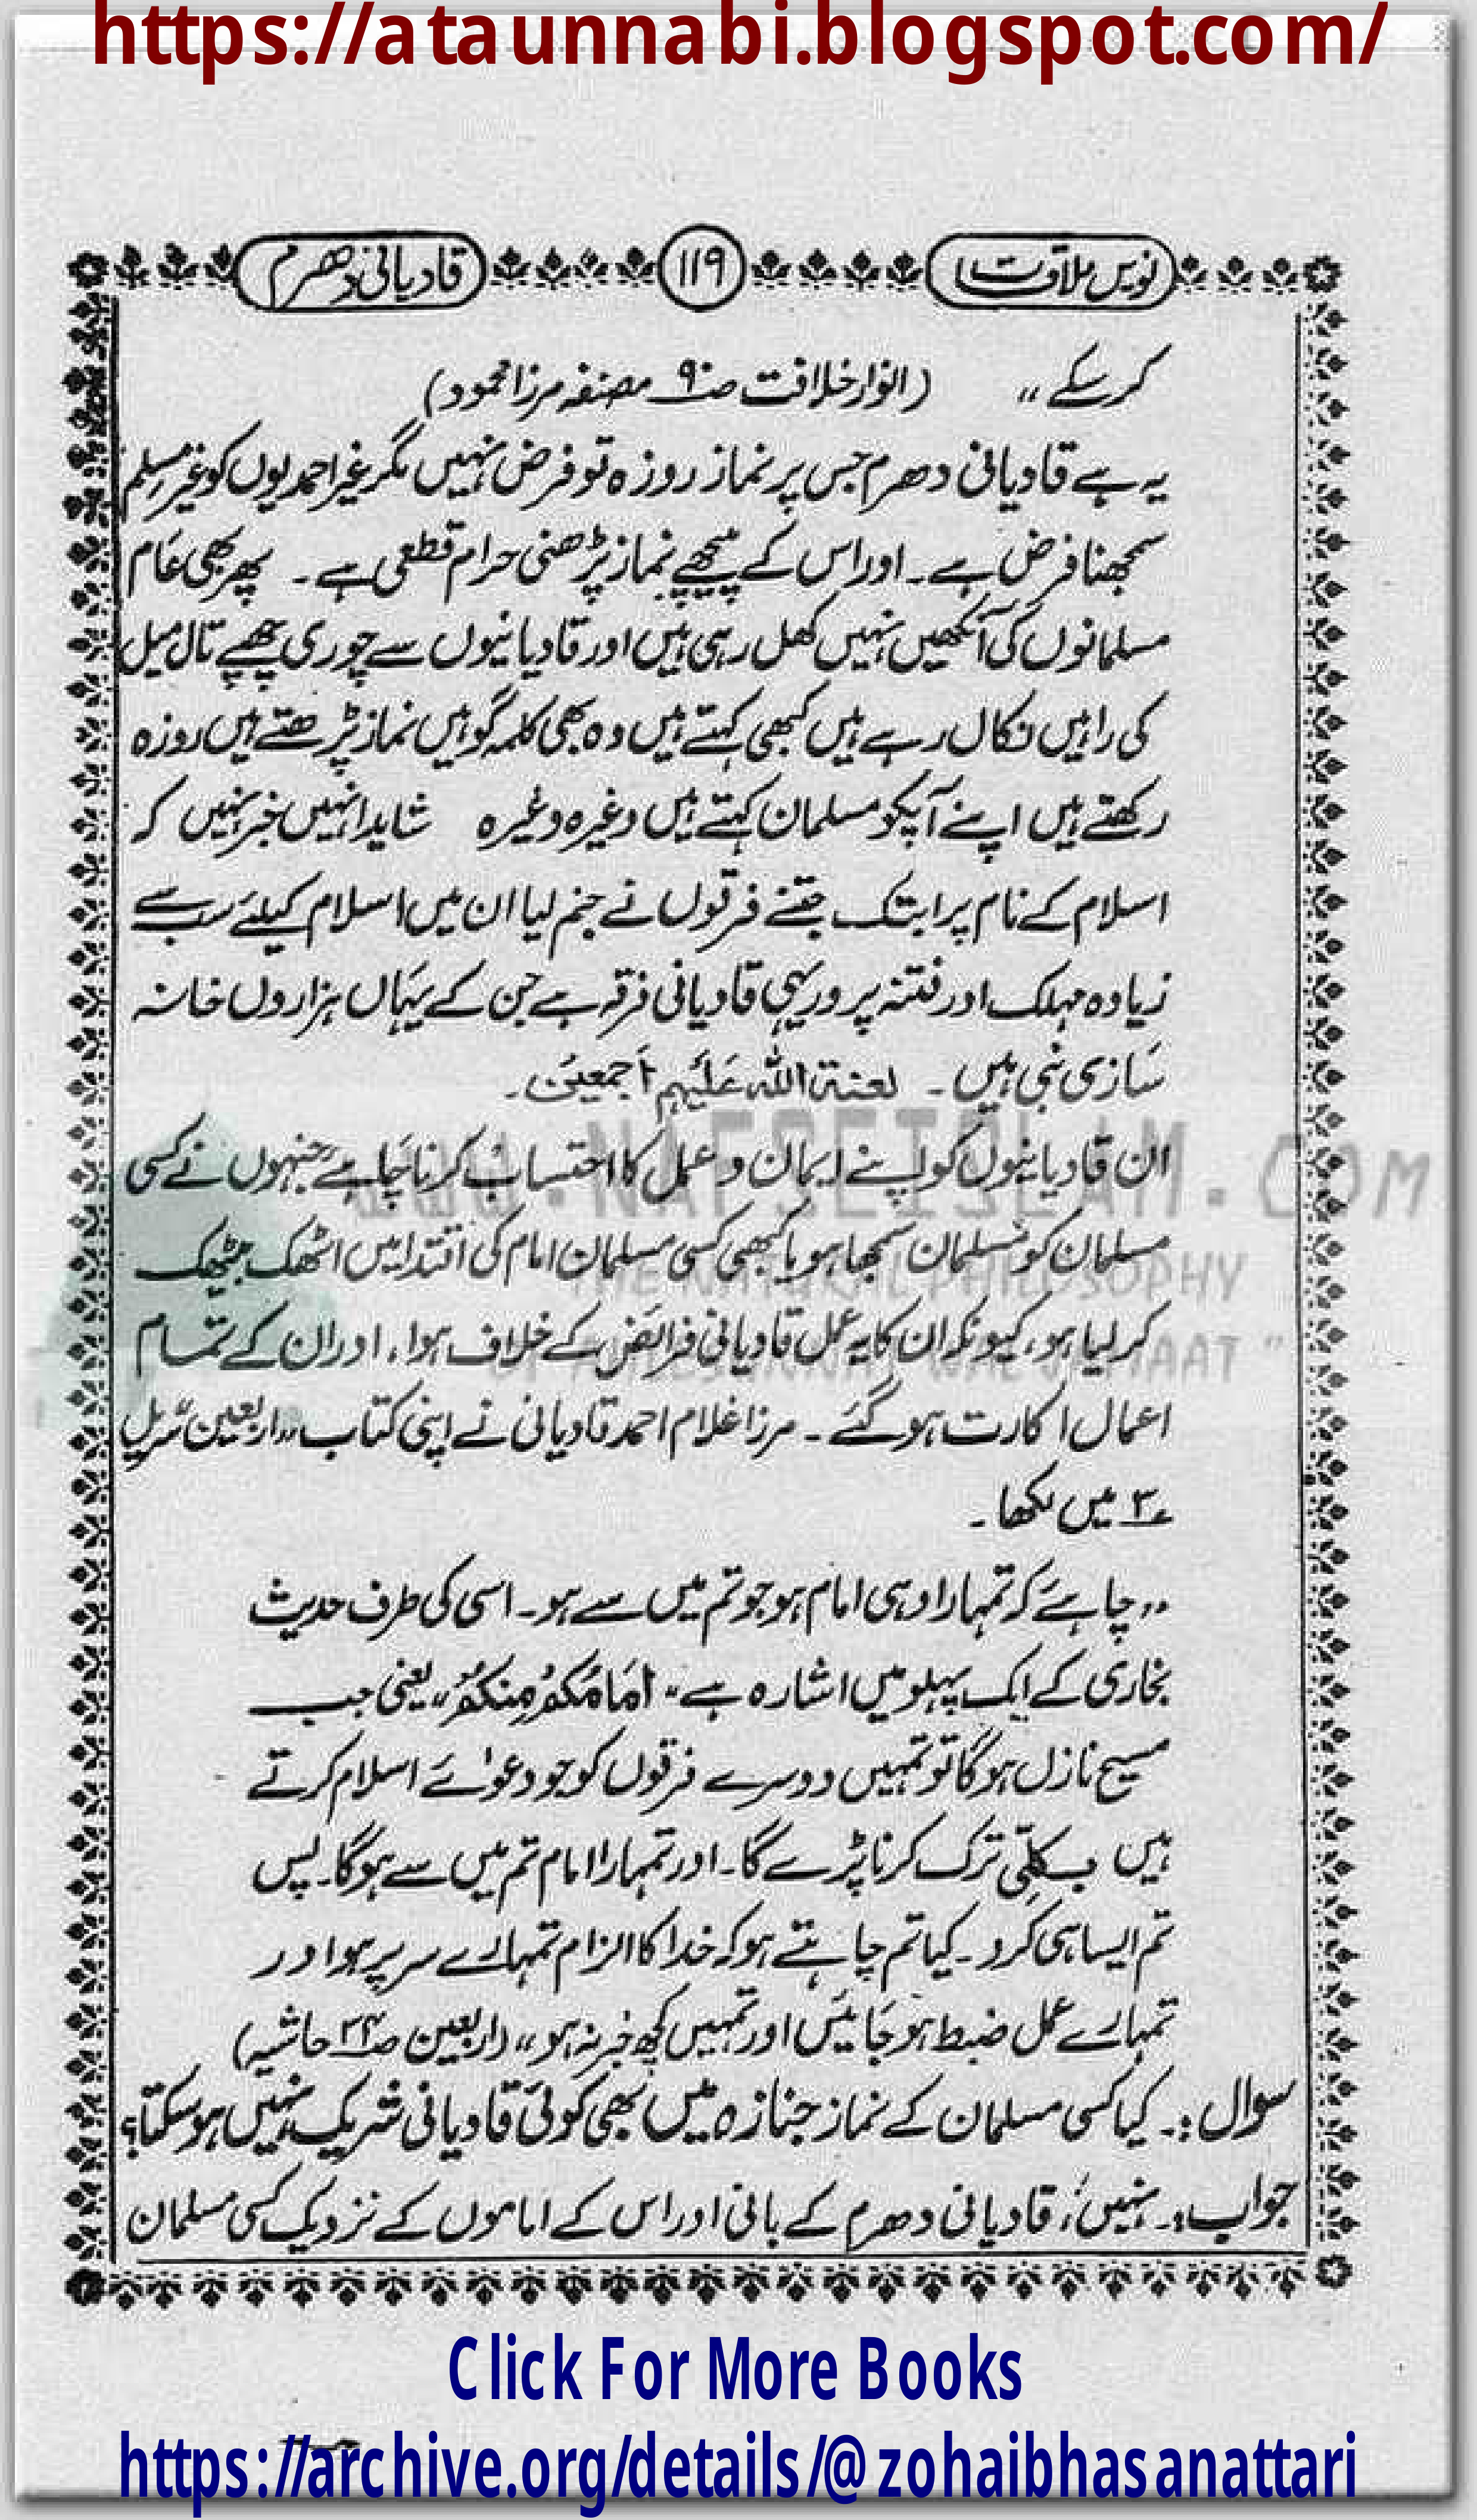 https://ataunnabi.blogspot.com/
نویں ملاقت ۱۱۹ قادیانی دھرم
کرسکے ،، (انوار خلافت صـ۹۰ مصنفہ مرزا محمود)
یہ ہے قادیانی دھرم جس پر نماز روزہ تو فرض نہیں مگر غیر احمدیوں کو غیر مسلم
سمجھنا فرض ہے۔ اور اس کے پیچھے نماز پڑھنی حرام قطعی ہے۔ پھر بھی عام
مسلمانوں کی آنکھیں نہیں کھل رہی ہیں اور قادیانیوں سے چوری چھپے تال میل
کی راہیں نکال رہے ہیں کبھی کہتے ہیں وہ بھی کلمہ گو ہیں نماز پڑھتے ہیں روزہ
رکھتے ہیں اپنے آپکو مسلمان کہتے ہیں وغیرہ وغیرہ شاید انہیں خبر نہیں کہ
اسلام کے نام پر ابتک جتنے فرقوں نے جنم لیا ان میں اسلام کیلئے سب سے
زیادہ مہلک اور فتنہ پرور یہی قادیانی فرقہ ہے جن کے یہاں ہزاروں خانہ
سازی نبی ہیں۔ لعنۃ اللہ علیہم اجمعین۔
ان قادیانیوں کو اپنے ایمان و عمل کا احتساب کرنا چاہئے جنہوں نے کسی
مسلمان کو مسلمان سمجھا ہو یا کبھی کسی مسلمان امام کی اقتدا میں اٹھک بیٹھک
کر لیا ہو، کیونکہ ان کا یہ عمل قادیانی فرائض کے خلاف ہوا، اور ان کے تمام
اعمال اکارت ہوگئے۔ مرزا غلام احمد قادیانی نے اپنی کتاب ،،اربعین سریل
۳؂ میں لکھا۔
،،چاہئے کہ تمہارا وہی امام ہو جو تم میں سے ہو۔ اسی کی طرف حدیث
بخاری کے ایک پہلو میں اشارہ ہے ،،اِمَامُکُمْ مِنکُمْ،، یعنی جب
مسیح نازل ہوگا تو تمہیں دوسرے فرقوں کو جو دعوٰے اسلام کرتے
ہیں بکلّی ترک کرنا پڑے گا۔ اور تمہارا امام تم میں سے ہوگا۔ پس
تم ایسا ہی کرو۔ کیا تم چاہتے ہو کہ خدا کا الزام تمہارے سر پر ہو اور
تمہارے عمل ضبط ہو جائیں اور تمہیں کچھ خبر نہ ہو،، (اربعین صـ۳۴ حاشیہ)
سوال :۔ کیا کسی مسلمان کے نماز جنازہ میں بھی کوئی قادیانی شریک نہیں ہوسکتا؟
جواب :۔ نہیں، قادیانی دھرم کے بانی اور اس کے اماموں کے نزدیک کسی مسلمان
WWW.NAFSEISLAM.COM
THE NATURAL PHILOSOPHY
Click For More Books
https://archive.org/details/@zohaibhasanattari